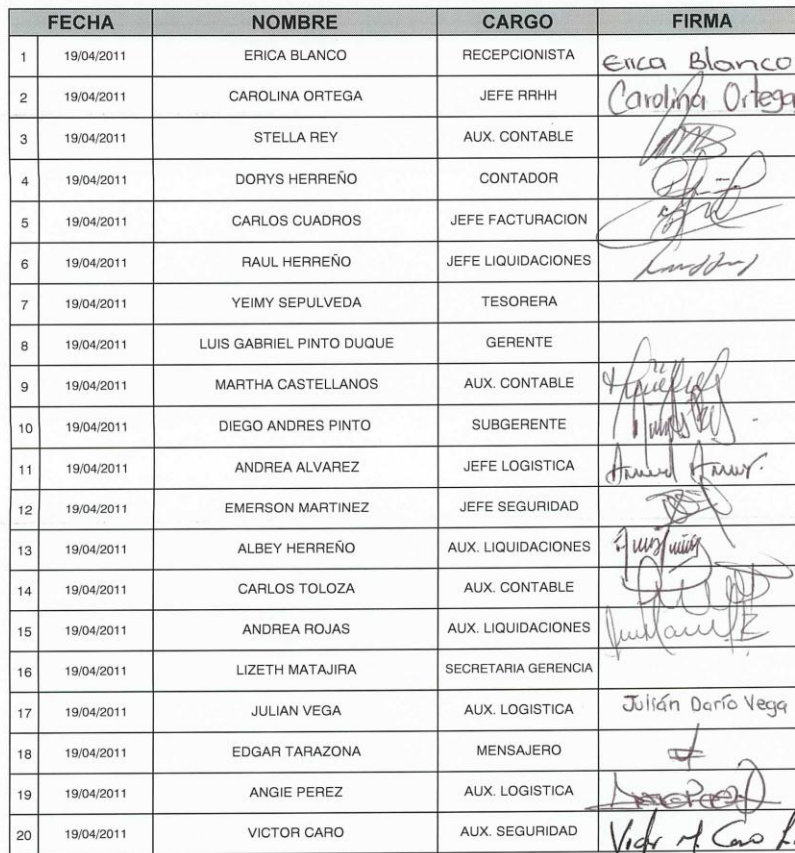 FECHA NOMBRE CARGO FIRMA
1 19/04/2011 ERICA BLANCO RECEPCIONISTA Erica Blanco
2 19/04/2011 CAROLINA ORTEGA JEFE RRHH Carolina Ortega
3 19/04/2011 STELLA REY AUX. CONTABLE
4 19/04/2011 DORYS HERREÑO CONTADOR
5 19/04/2011 CARLOS CUADROS JEFE FACTURACION
6 19/04/2011 RAUL HERREÑO JEFE LIQUIDACIONES
7 19/04/2011 YEIMY SEPULVEDA TESORERA
8 19/04/2011 LUIS GABRIEL PINTO DUQUE GERENTE
9 19/04/2011 MARTHA CASTELLANOS AUX. CONTABLE
10 19/04/2011 DIEGO ANDRES PINTO SUBGERENTE
11 19/04/2011 ANDREA ALVAREZ JEFE LOGISTICA
12 19/04/2011 EMERSON MARTINEZ JEFE SEGURIDAD
13 19/04/2011 ALBEY HERREÑO AUX. LIQUIDACIONES
14 19/04/2011 CARLOS TOLOZA AUX. CONTABLE
15 19/04/2011 ANDREA ROJAS AUX. LIQUIDACIONES
16 19/04/2011 LIZETH MATAJIRA SECRETARIA GERENCIA
17 19/04/2011 JULIAN VEGA AUX. LOGISTICA Julián Darío Vega
18 19/04/2011 EDGAR TARAZONA MENSAJERO
19 19/04/2011 ANGIE PEREZ AUX. LOGISTICA
20 19/04/2011 VICTOR CARO AUX. SEGURIDAD Victor M. Caro